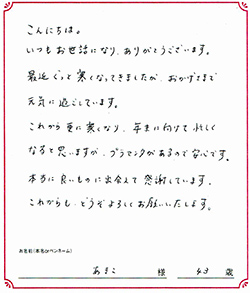 こんにちは。
いつもお世話になり、ありがとうございます。
最近ぐっと寒くなってきましたが、おかげさまで
元気に過ごしています。
これから更に寒くなり、年末に向けて忙しく
なると思いますが、プラセンタがあるので安心です。
本当に良いものに出会えて感謝しています。
これからも、どうぞよろしくお願いいたします。
お名前(本名orペンネーム)
あきこ 様 43 歳